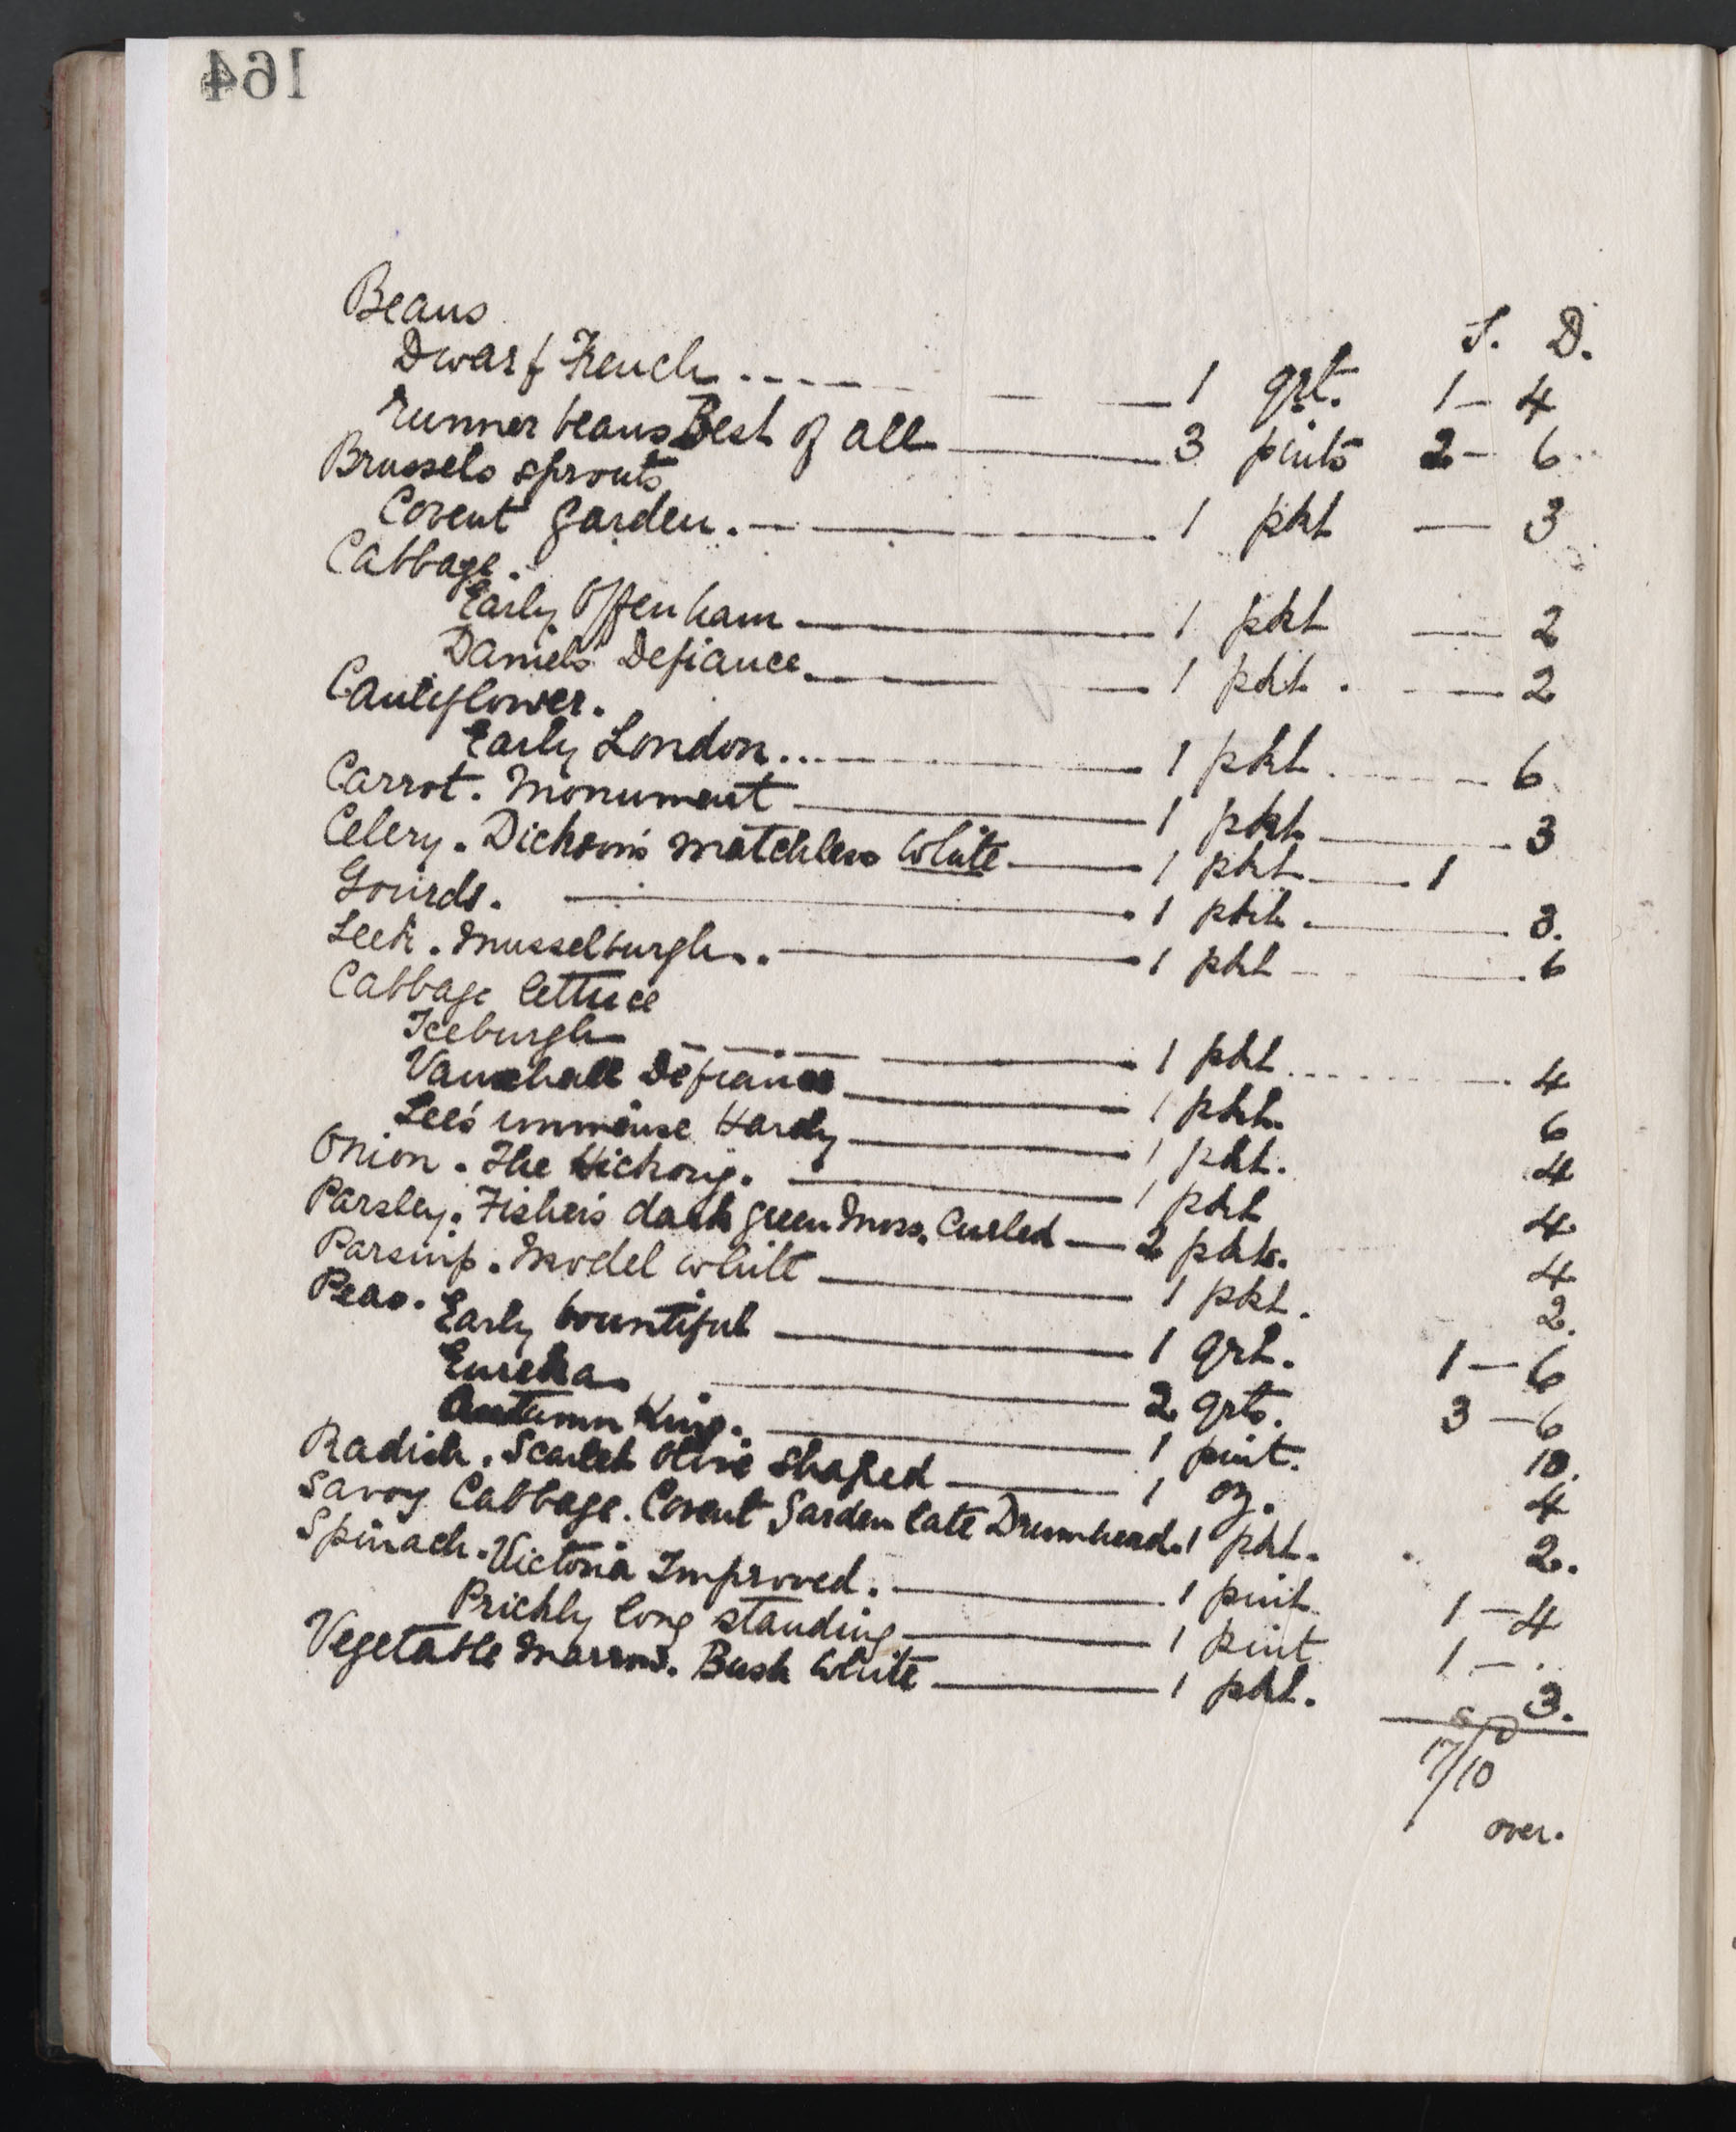 164
Beans
S. D.
Dwarf French. ---- 1 qrt. 1 - 4
Runner beans Best of all — 3 pints 2 - 6
Brussels sprouts
Covent Garden. — 1 pkt — 3
Cabbage.
Early Offenham — 1 pkt — 2
Daniels Defiance. — 1 pkt. — 2
Cauliflower.
Early London... — 1 pkt. — 6
Carrot. Monument — 1 pkt — 3
Celery. Dickson's matchless White — 1 pkt — 1
Gourds. — 1 pkt. — 3.
Leek. Musselburgh. — 1 pkt — 6
Cabbage lettuce
Iceburgh — 1 pkt — 4
Vauxhall Defiance — 1 pkt. 6
Lee's immense Hardy — 1 pkt. 4
Onion. The Hickory. — 1 pkt 4
Parsley. Fisher's dark green Moss. Curled — 2 pkts. 4
Parsnip. Model white — 1 pkt. 2.
Peas. Early bountiful — 1 qrt. 1 - 6
Eureka — 2 qrts. 3 - 6
Autumn King. — 1 pint. 10.
Radish. Scarlet Olive Shaped — 1 oz. 4
Savoy Cabbage. Covent Garden late Drumhead. 1 pkt. 2.
Spinach. Victoria Improved. — 1 pint 1 - 4
Prickly long standing — 1 pint 1 - .
Vegetable Marrow. Bush White — 1 pkt. 3.
S D
17/10
over.